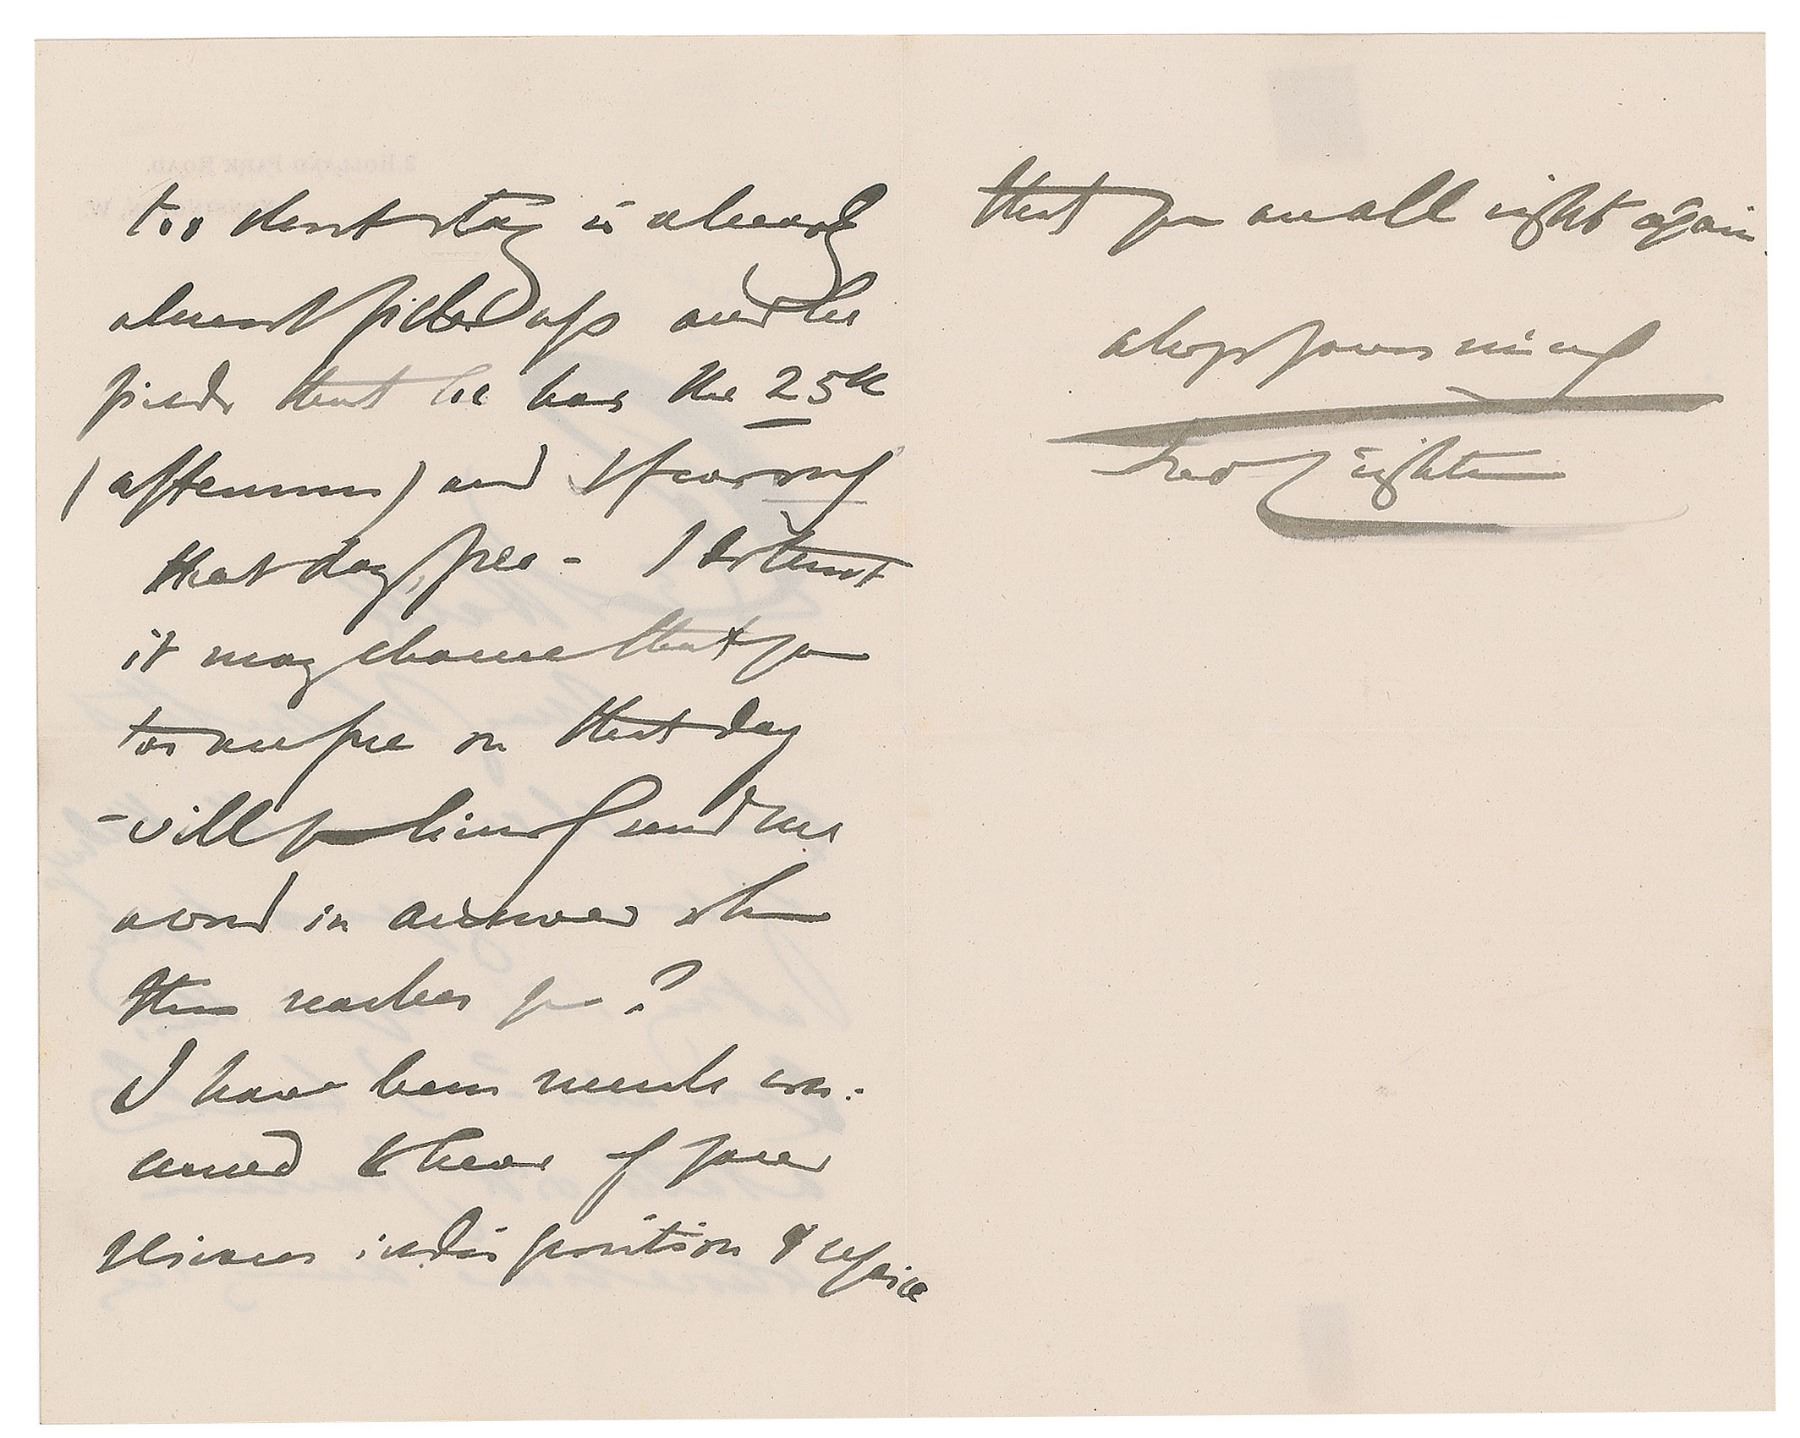 2 HOLLAND PARK ROAD,
KENSINGTON, W.
too short stay is already
almost filled up and he
finds that he has the 25th
(afternoon) and I fear only
that day, free - I do trust
it may chance that you
too are free on that day
- will you send me
a word in answer when
this reaches you?
I have been much con-
cerned to hear of your
serious indisposition & rejoice
that you are all right again.
always yours sincerely
Fred Leighton